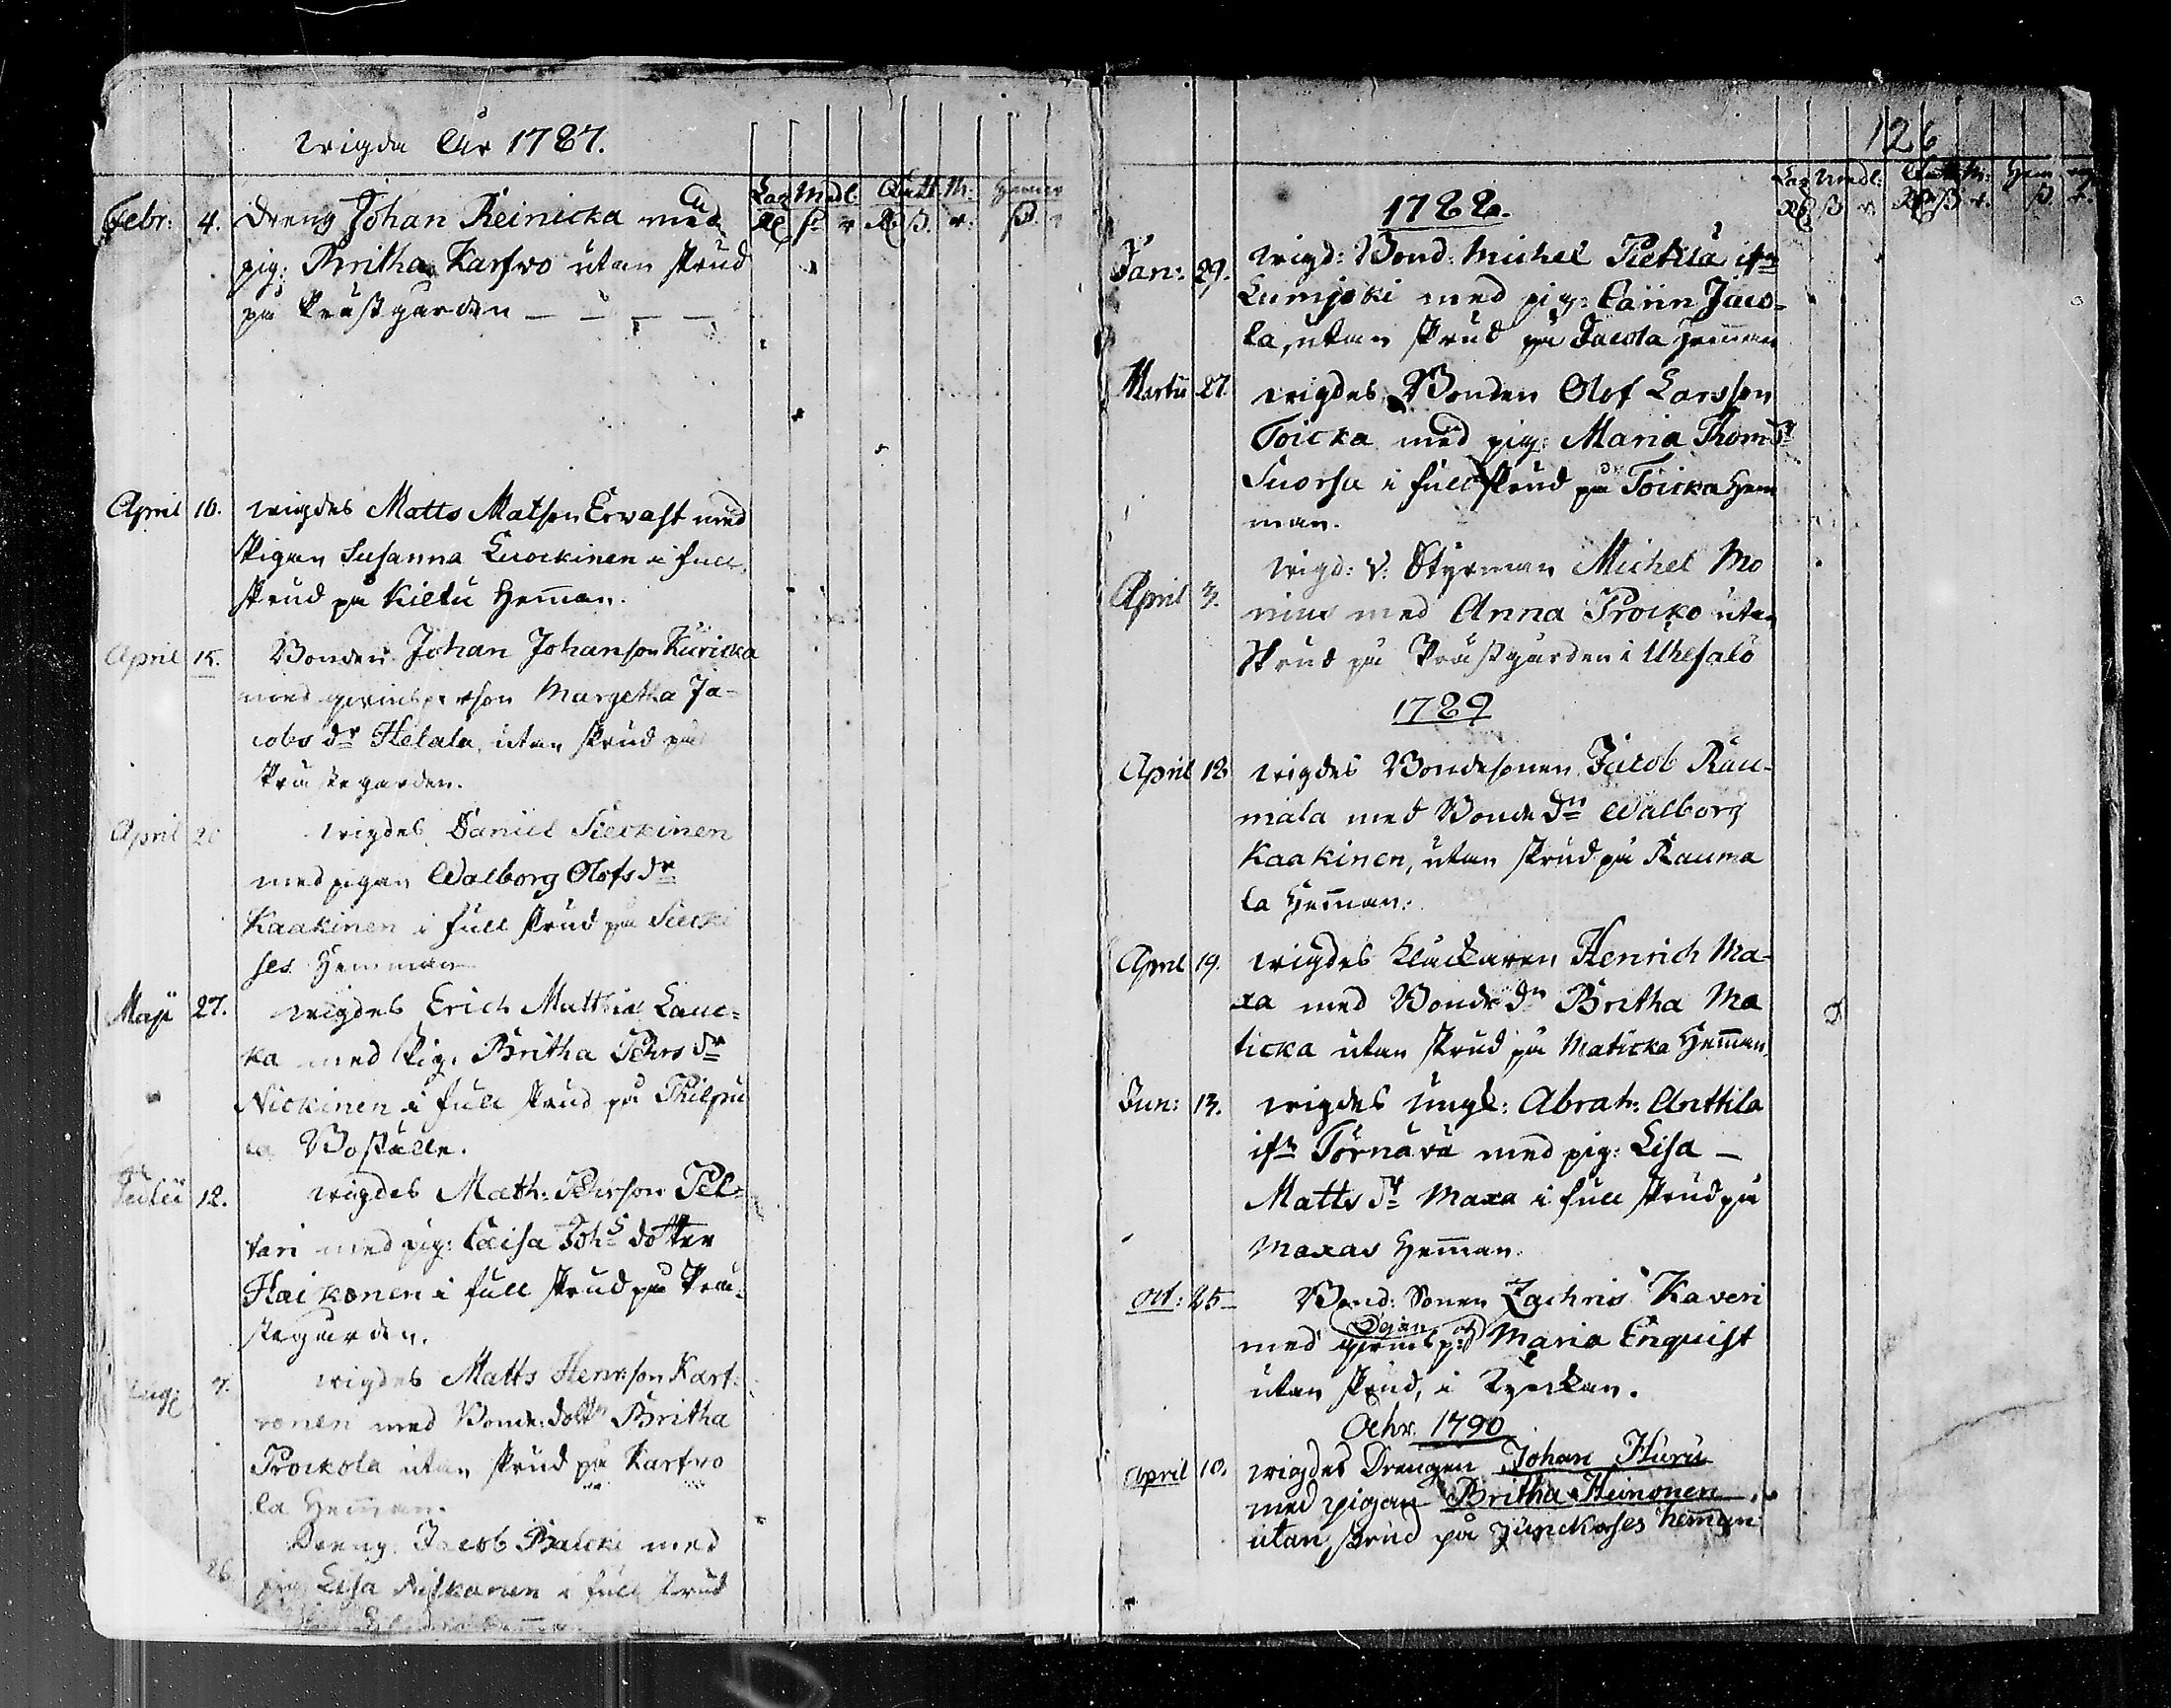 wigda År 1787.
Laz. Medl: Qvitt. M:
Febr: 4. Dreng Johan Reinicka med
pig: Britha Karfwo utan skrud
på Prästgården
April 10. wigdes Matts Matson Erwast med
Pigan Susanna Luockinen i full
skrud på Kieltu Heman.
April 15. Bonden Johan Johanson Kuricka
med qwinsperson Margetha Ja-
cobs dr Helala, utan skrud på
Prästegården.
April 20 wigdes Daniel Sieckinen
med pigan Walborg Olofs dr
Kaakinen i full skrud på Siecki
ses Hemman
Maji 27. wigdes Erich Matthia Lauc-
ka med Pig. Britha Pehrs dr
Nickinen i full skrud på Philpu
la Boställe.
Julii 12. wigdes Math: Pehrson Pel-
tari med pig: Caisa Johs dotter
Haikonen i full skrud på Prä-
stegården.
Aug: 7. wigdes Matts Henrson Karf-
vonen med Bonde:dottr Britha
Prockola utan skrud på Karfvo
la Heman.
26. Dreng: Jacob Palcki med
pig Lisa Niskanen i full skrud
126
Laz Medl: Qvitt. M: Hem
1788.
Jan: 29. wigd: Bond: Michel Pietila ifrn
Lumijoki med pig: Carin Jaco-
la, utan skrud på Jacola Heman
Martii 27. wigdes Bonden Olof Larsson
Toicka med pig: Maria Thoms dr
Suorsa i full skrud på Toicka Hem
man.
April 3. wigd: v: Styrman Michel Mo
nius med Anna Procko utan
Skrud på Prästgården i Uhlsalo
1789
April 12 wigdes Bondesonen Jacob Rau-
mala med Bonde dr Walborg
Kaakinen, utan skrud på Rauma
la Heman.
April 19. wigdes Klåckaren Henrich Ma-
xa med Bonde dr Britha Ma
ticka utan skrud på Maticka Heman.
Jun: 13. wigdes Yngl: Abrah: Anttila
ifrn Törnävä med pig: Lisa —
Matts dr Maxa i full skrud på
Maxas Heman.
Oct: 25 Bond: Sonen Zachris Kaveri
med qwinsp: Maria Enquist
utan skrud, i Kyrckan.
Aohr. 1790
April 10. wigdes Drengen Johan Huru
med pigan Britha Heinonen
utan skrud på Junckoses heman